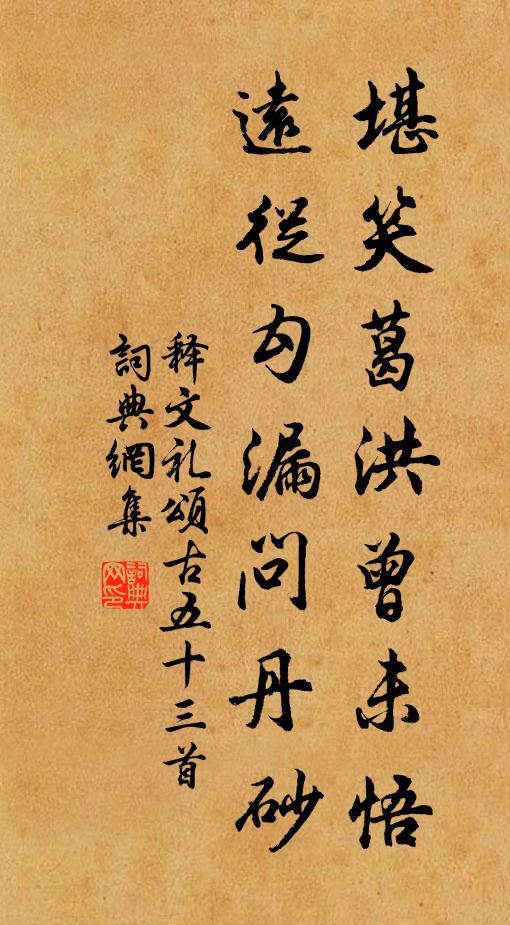 堪笑葛洪曾未悟
遠從勾漏問丹砂
释文礼頌古五十三首
詞典網集
詞典
网印